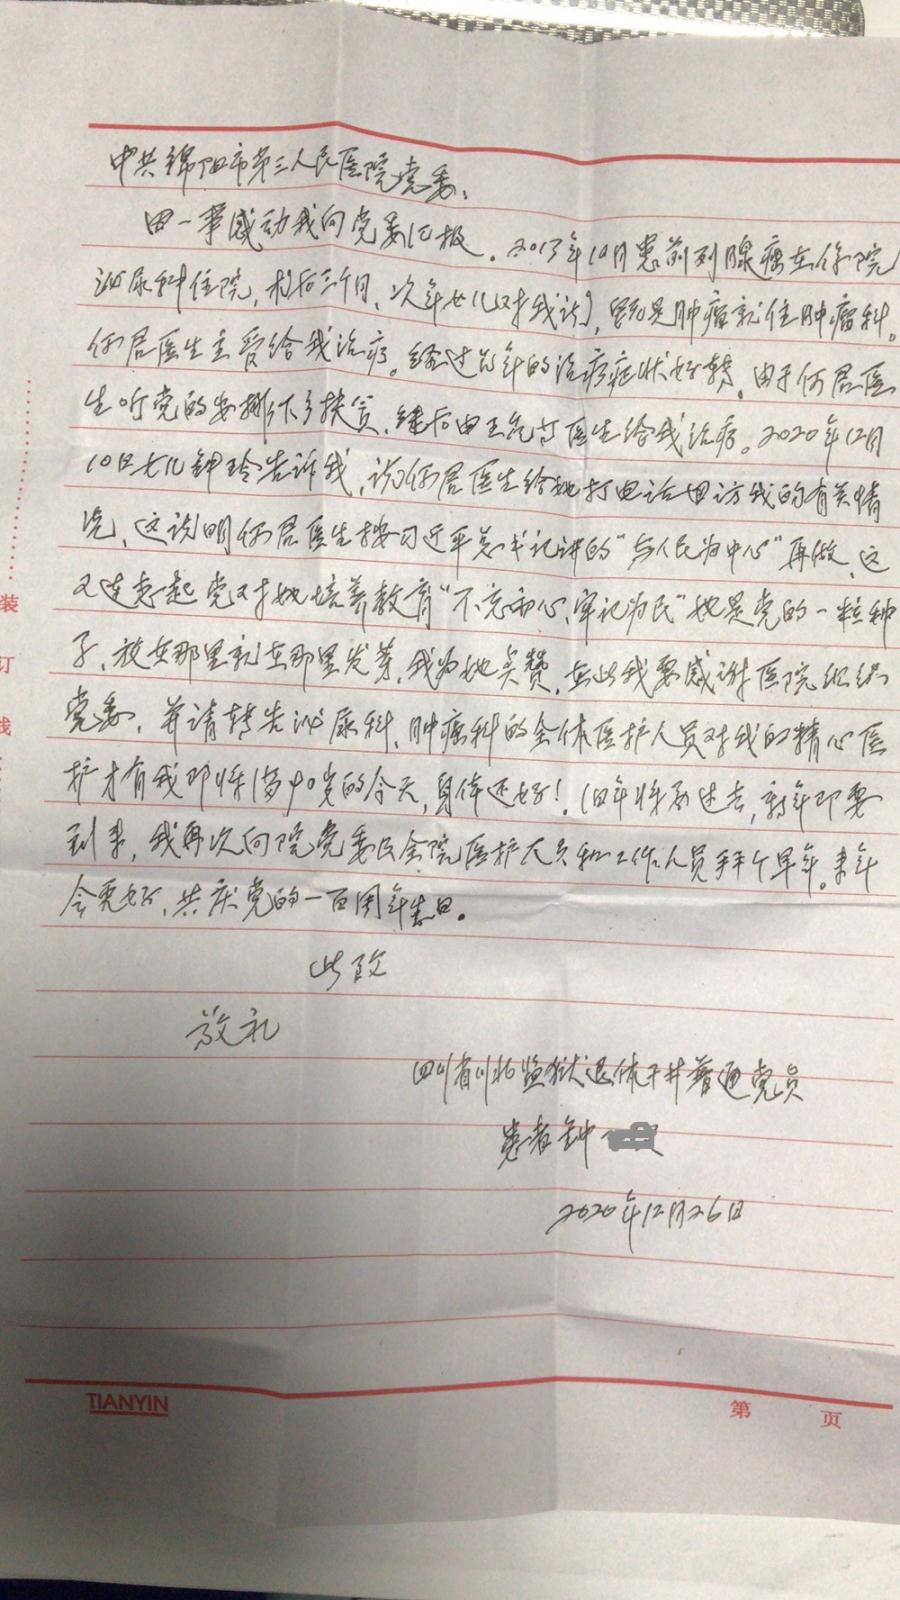 中共绵阳市第三人民医院党委:
因一事感动我向党委汇报。2013年10月患前列腺癌在你院
泌尿科住院,机后三个月,次年女儿对我说,既是肿瘤就住肿瘤科。
何居医生主要给我治疗。经过几年的治疗症状好转,由于何居医
生听党的安排下乡扶贫,继后由医生给我治疗。2020年12月
10日女儿钟玲告诉我,说何居医生给她打电话回访我的有关情
况,这说明何居医生按习近平总书记讲的“与人民为中心”再做,这
又连想起党对她培养教育“不忘初心,牢记为民”她是党的一粒种
子,放在那里就在那里发芽,我为她点赞,在此我要感谢医院组织
党委,并请转告泌尿科、肿瘤科的全体医护人员对我的精心医
护才有我即将满90岁的今天,身体还好!旧年将要过去,新年即要
到来,我再次向院党委及全院医护人员和工作人员拜个早年。来年
会更好,共庆党的一百周年生日。
此致
敬礼
四川省川北监狱退休干井普通党员
患者钟
2020年12月26日
装
订
线
TIANYIN
第 页